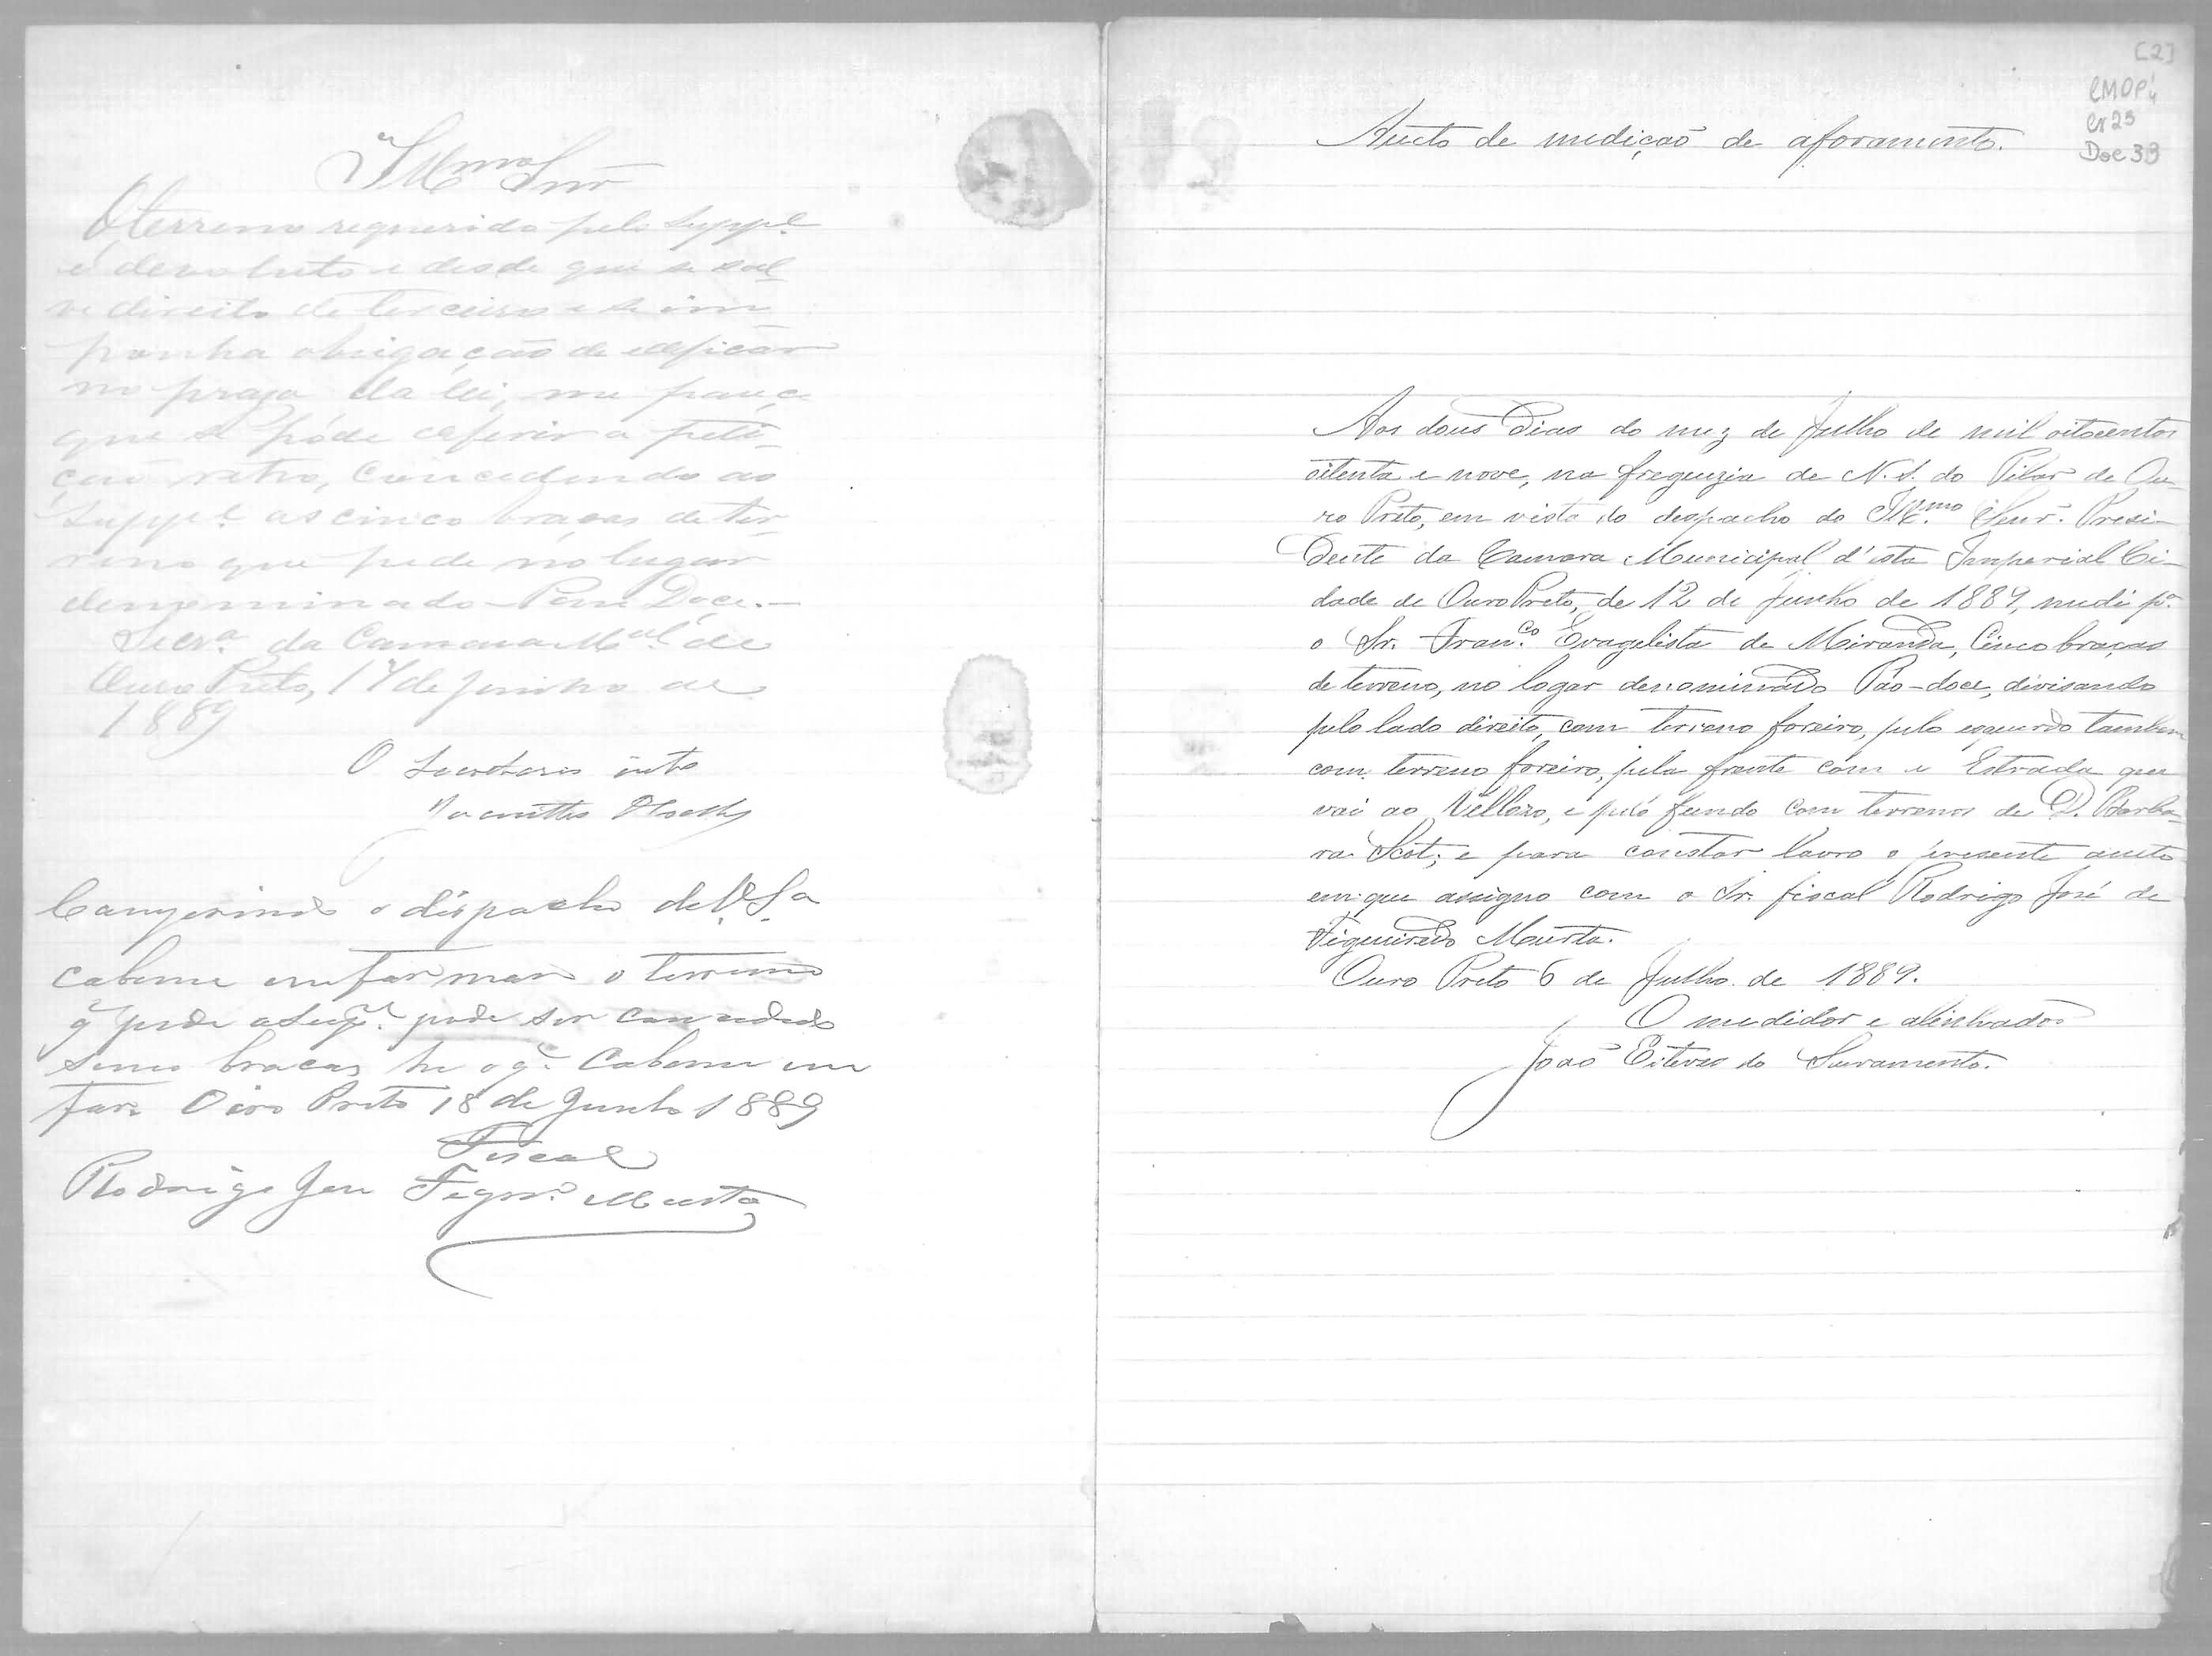 Illmo Snr
O terreno requerido pelo Suppe.
é devoluto e desde que se sal-
ve direito de terceiro e se im
ponha obrigação de edificar
no prazo da lei, me parece
que se póde deferir a peti-
ção retro, concedendo ao
Suppe. as cinco braças de ter-
reno que pede no lugar
denominado - Páu Doce. -
Secra. da Camara Mal. de
Ouro Preto, 17 de Junho de
1889
O Secretario into
Comprindo o dispacho de V. Sa.
cabeme enformar o terreno
q̃ pede o Supe. pode ser concedido
sinco bracas he o q̃. Cabeme en
far. Oiro Preto 18 de Junho 1889
Fiscal
Rodrigo Jose Figdo. Murta
[2]
CMOP
Cx 25
Doc 39
Aucto de mediçaõ de aforamento.
Aos dous dias do mez de Julho de mil oitocentos
oitenta e nove, na freguezia de N. S. do Pilar de Ou-
ro Preto, em vista do despacho do Ill.mo Senr. Presi-
dente da Camara Municipal d'esta Imperial Ci-
dade de Ouro Preto, de 12 de Junho de 1889, medi pa.
o Sr. Franco. Evagelista de Miranda, Cinco braças
de terreno, no logar denominado Páo-doce, divisando
pelo lado direito, com terreno foreiro, pelo esquerdo tambem
com terreno foreiro, pela frente com a Estrada que
vai ao Vellozo, e pelo fundo com terrenos de D. Barba-
ra Scot; e para constar lavro o presente aucto
em que assigno com o Sr. fiscal Rodrigo José de
Figueiredo Murta.
Ouro Preto 6 de Julho de 1889.
O medidor e alinhador
João Esteves do Sacramento.